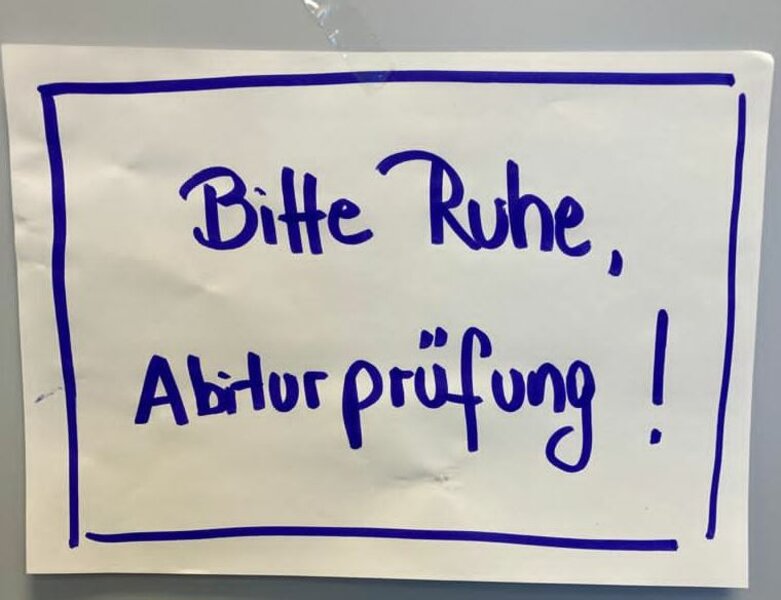 Bitte Ruhe,
Abiturprüfung!